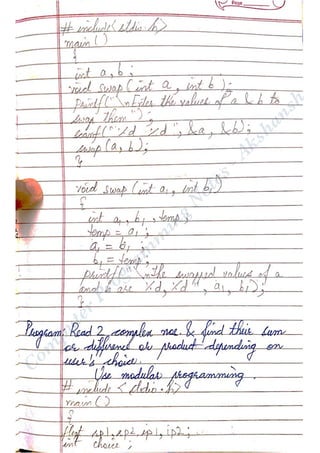 Page
# include <stdio.h>
main()
{
int a, b;
void swap (int a, int b);
printf("\nEnter the values of a & b to
swap them");
scanf("%d %d", &a, &b);
swap (a, b);
}
void swap (int a1, int b1)
{
int a1, b1, temp;
temp = a1;
a1 = b1;
b1 = temp;
printf("\nThe swapped values of a
and b are %d, %d", a1, b1);
}
Program: Read 2 complex nos. & find their sum
or difference or product depending on
user's choice.
Use modular programming.
# include <stdio.h>
main()
{
float rp1, rp2, ip1, ip2;
int choice;
Computer Programming Notes Akshansh